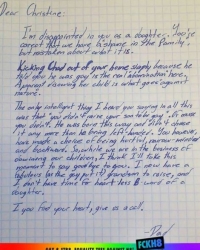 Dear Christine:
I'm disappointed in you as a daughter. You're
correct that we have a shame in the family,
but mistaken about what it is.
Kicking Chad out of your home simply because he
told you he was gay is the real abomination here.
A parent disowning her child is what goes against
nature.
The only intelligent thing I heard you saying in all this
was that "you didn't raise your son to be gay". Of course
you didn't. He was born this way and didn't choose
it any more than he being left-handed. You however,
have made a choice of being hurtful, narrow minded
and backward. So, while we are in the business of
disowning our children, I think I'll take this
moment to say goodbye to you. I now have a
fabulous (as the gay put it) grandson to raise, and
I don't have time for heart-less B-word of a
daughter.
If you find your heart, give us a call.
-Dad
FCKH8